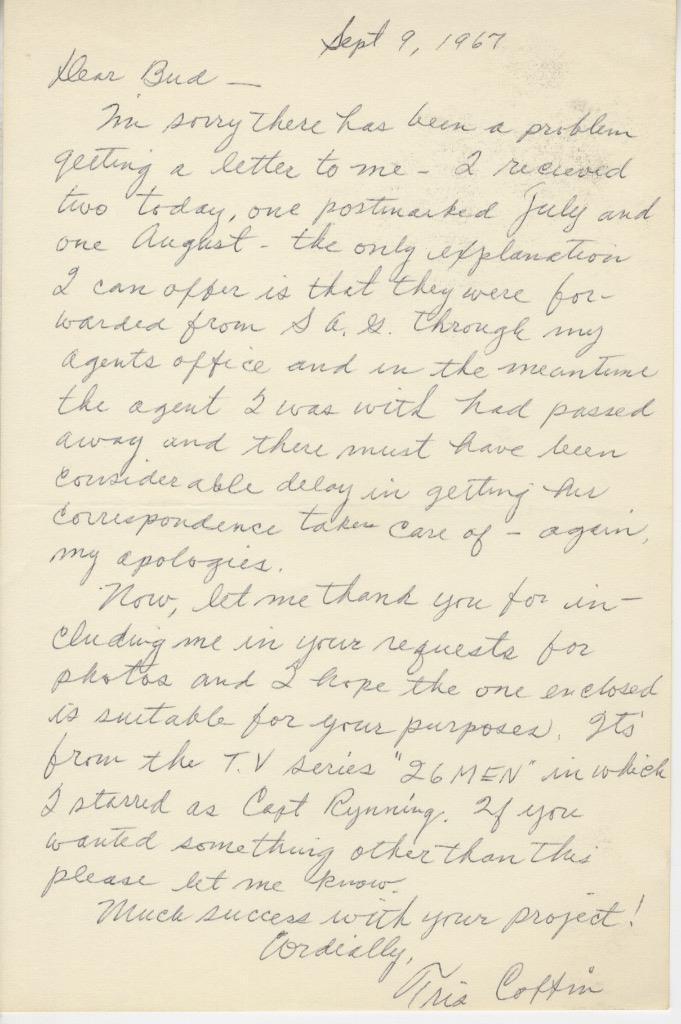 Sept 9, 1967
Dear Bud —
I'm sorry there has been a problem
getting a letter to me - I recieved
two today, one postmarked July and
one August - the only explanation
I can offer is that they were for-
warded from S A. G. through my
agents office and in the meantime
the agent I was with had passed
away and there must have been
considerable delay in getting his
correspondence taken care of - again,
my apologies.
Now, let me thank you for in-
cluding me in your requests for
photos and I hope the one enclosed
is suitable for your purposes. It's
from the T.V series "26 MEN" in which
I starred as Capt Rynning. If you
wanted something other than this
please let me know.
Much success with your project!
Cordially,
Tris Coffin